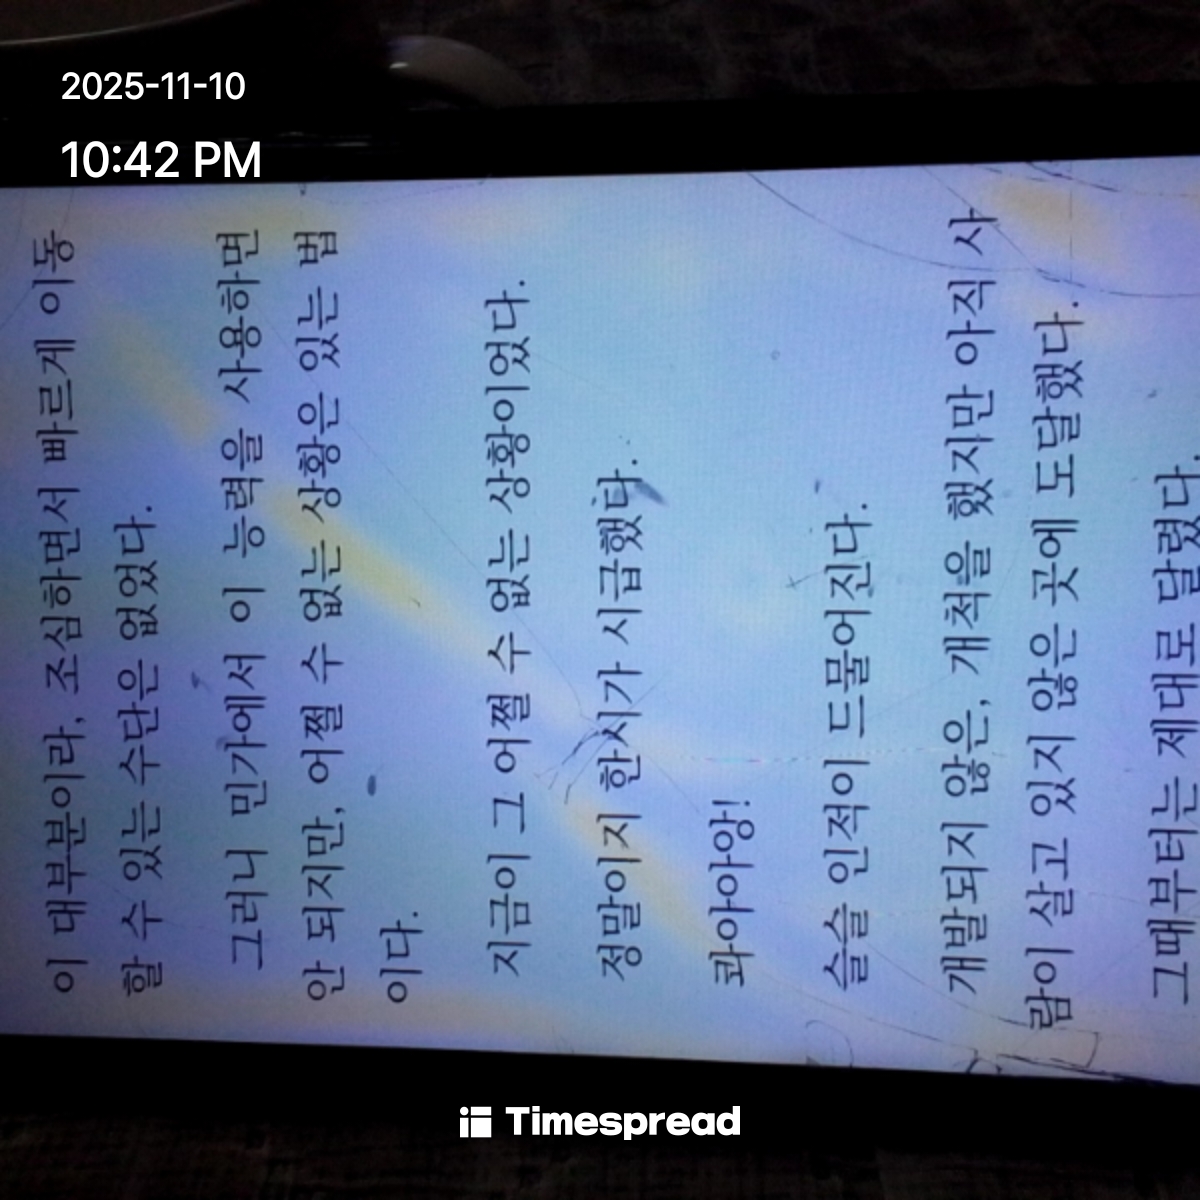 2025-11-10
10:42 PM
이 대부분이라, 조심하면서 빠르게 이동
할 수 있는 수단은 없었다.
그러니 민가에서 이 능력을 사용하면
안 되지만, 어쩔 수 없는 상황은 있는 법
이다.
지금이 그 어쩔 수 없는 상황이었다.
정말이지 한시가 시급했다.
콰아아앙!
슬슬 인적이 드물어진다.
개발되지 않은, 개척을 했지만 아직 사
람이 살고 있지 않은 곳에 도달했다.
그때부터는 제대로 달렸다.
Timespread